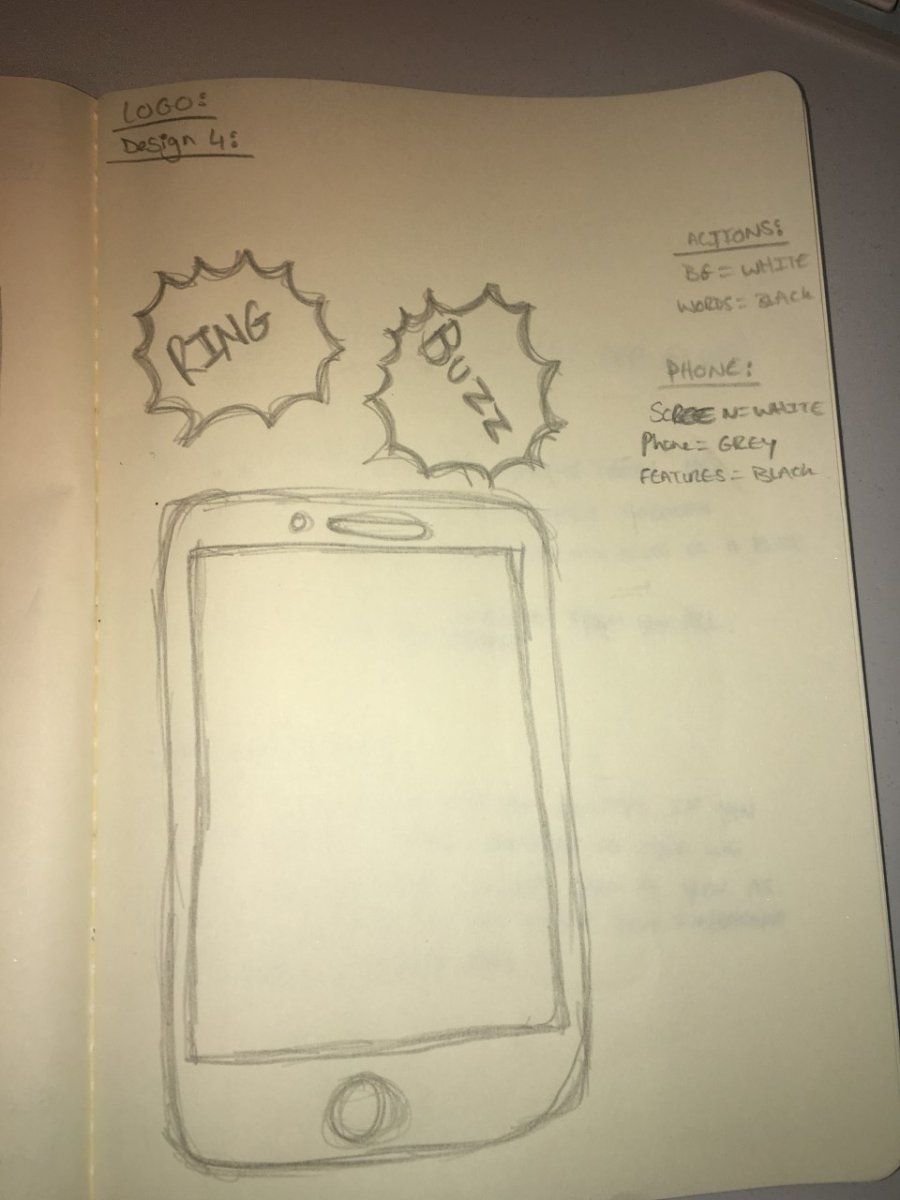 LOGO:
Design 4:
RING
BUZZ
ACTIONS:
BG = WHITE
WORDS = BLACK
PHONE:
SCREEN = WHITE
Phone = GREY
FEATURES = BLACK